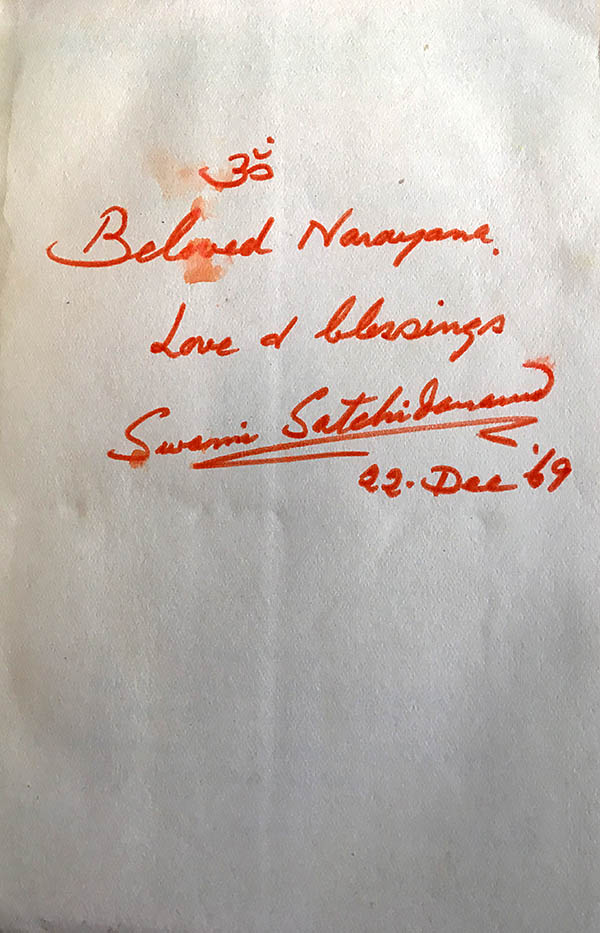 ॐ
Beloved Narayana.
Love & blessings
Swami Satchidanand
22. Dec '69